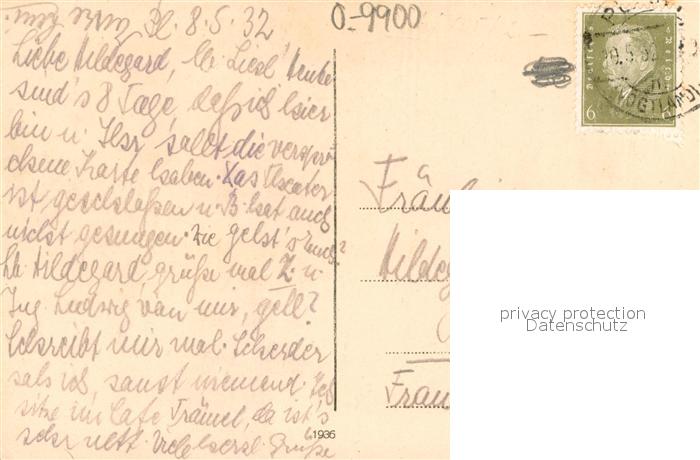 Pl. 8.5.32
0-9900
Liebe Hildegard, lb. Liesl! Heute
sind's 8 Tage, daß ich hier
bin u. Ihr sollt die verspro-
chene Karte haben. Das Theater
ist geschloßen u. B. hat auch
nicht gesungen. Wie geht's Euch?
Lb. Hildegard, grüße mal Z. u.
Ing. Ludwig von mir, gell?
Schreibt mir mal.
sah ich, sonst niemend. Ich
sitze im Cafe Trömel, da ist's
sehr nett. Viele herzl. Grüße
1936
6 6
VOGTLAND
Fräul
Hildeg
Fran
privacy protection
Datenschutz